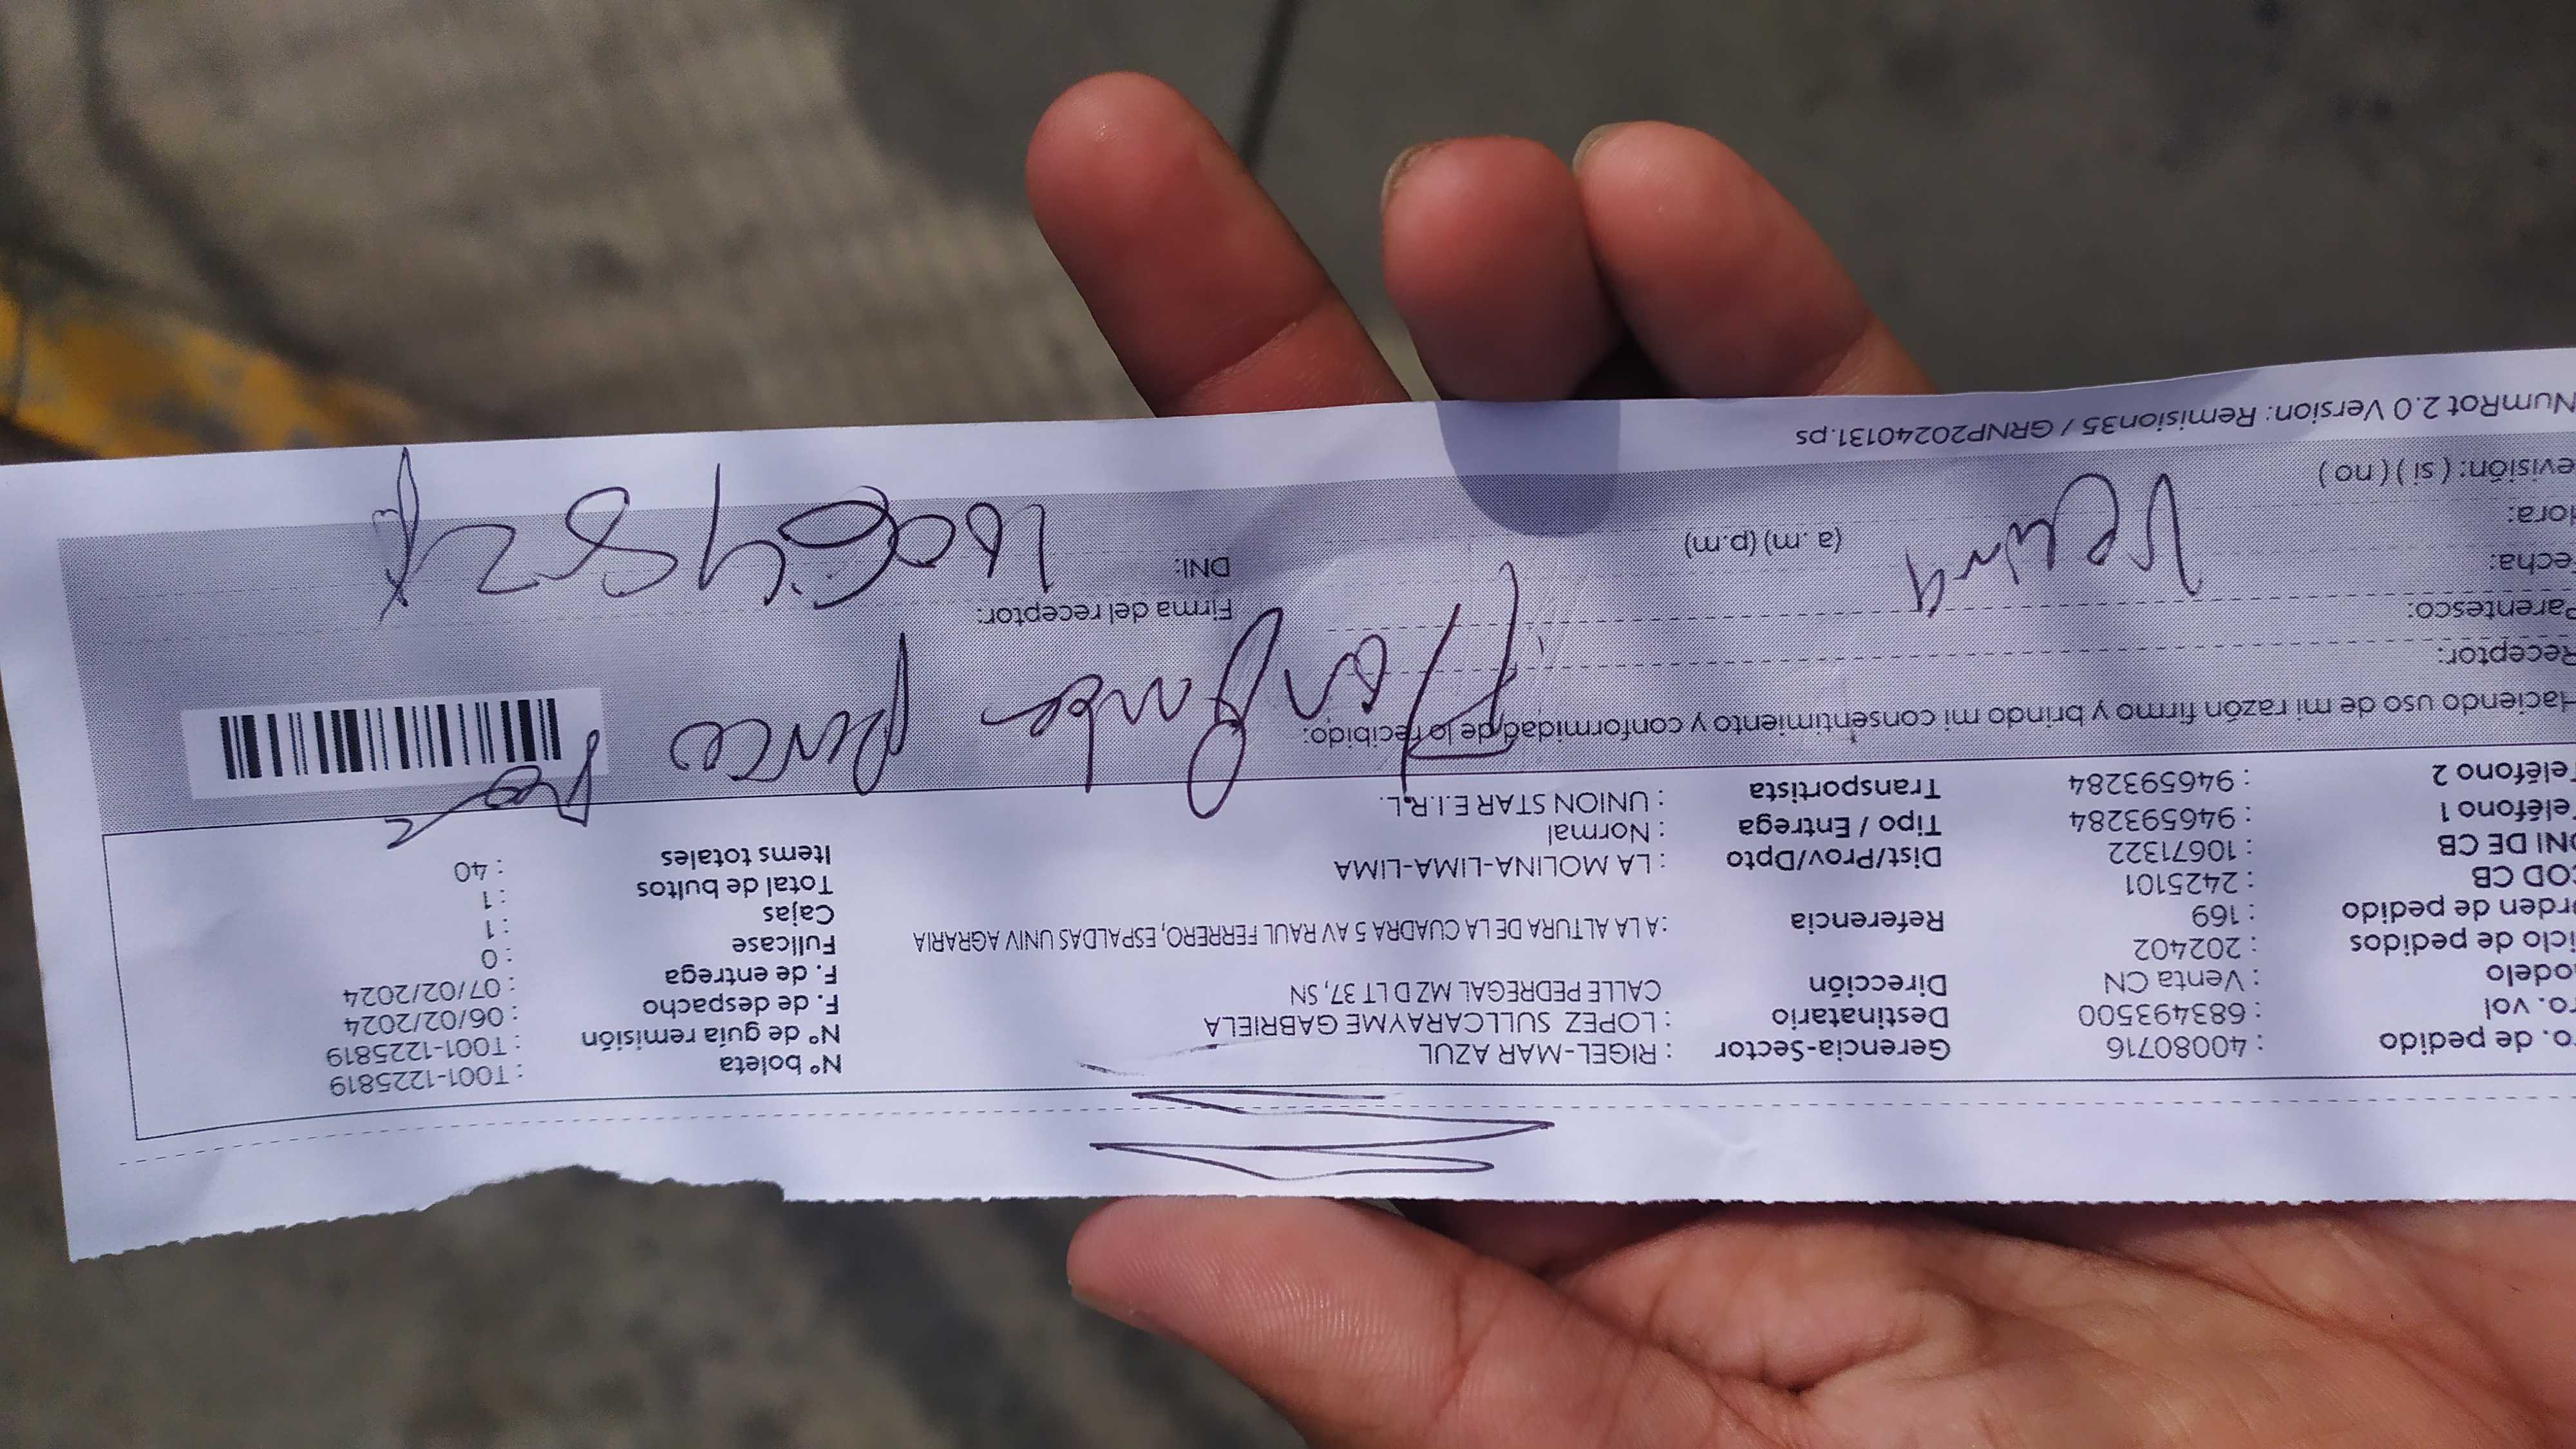 ro. de pedido : 40080716 Gerencia-Sector : RIGEL-MAR AZUL Nº boleta : T001-1225819
ro. vol : 683493500 Destinatario : LOPEZ SULLCARAYME GABRIELA Nº de guía remisión : T001-1225819
odelo : Venta CN Dirección CALLE PEDREGAL MZ D LT 37, SN F. de despacho : 06/02/2024
iclo de pedidos : 202402 F. de entrega : 07/02/2024
rden de pedido : 169 Referencia : A LA ALTURA DE LA CUADRA 5 AV RAUL FERRERO, ESPALDAS UNIV AGRARIA Fullcase : 0
COD CB : 2425101 Cajas : 1
DNI DE CB : 10671322 Dist/Prov/Dpto : LA MOLINA-LIMA-LIMA Total de bultos : 1
eléfono 1 : 946593284 Tipo / Entrega : Normal Items totales : 40
eléfono 2 : 946593284 Transportista : UNION STAR E.I.R.L.
Haciendo uso de mi razón firmo y brindo mi consentimiento y conformidad de lo recibido:
Receptor:
Parentesco: Firma del receptor:
Fecha: DNI:
Hora: (a.m) (p.m)
evisión: ( si ) ( no )
NumRot 2.0 Version: Remision35 / GRNP20240131.ps